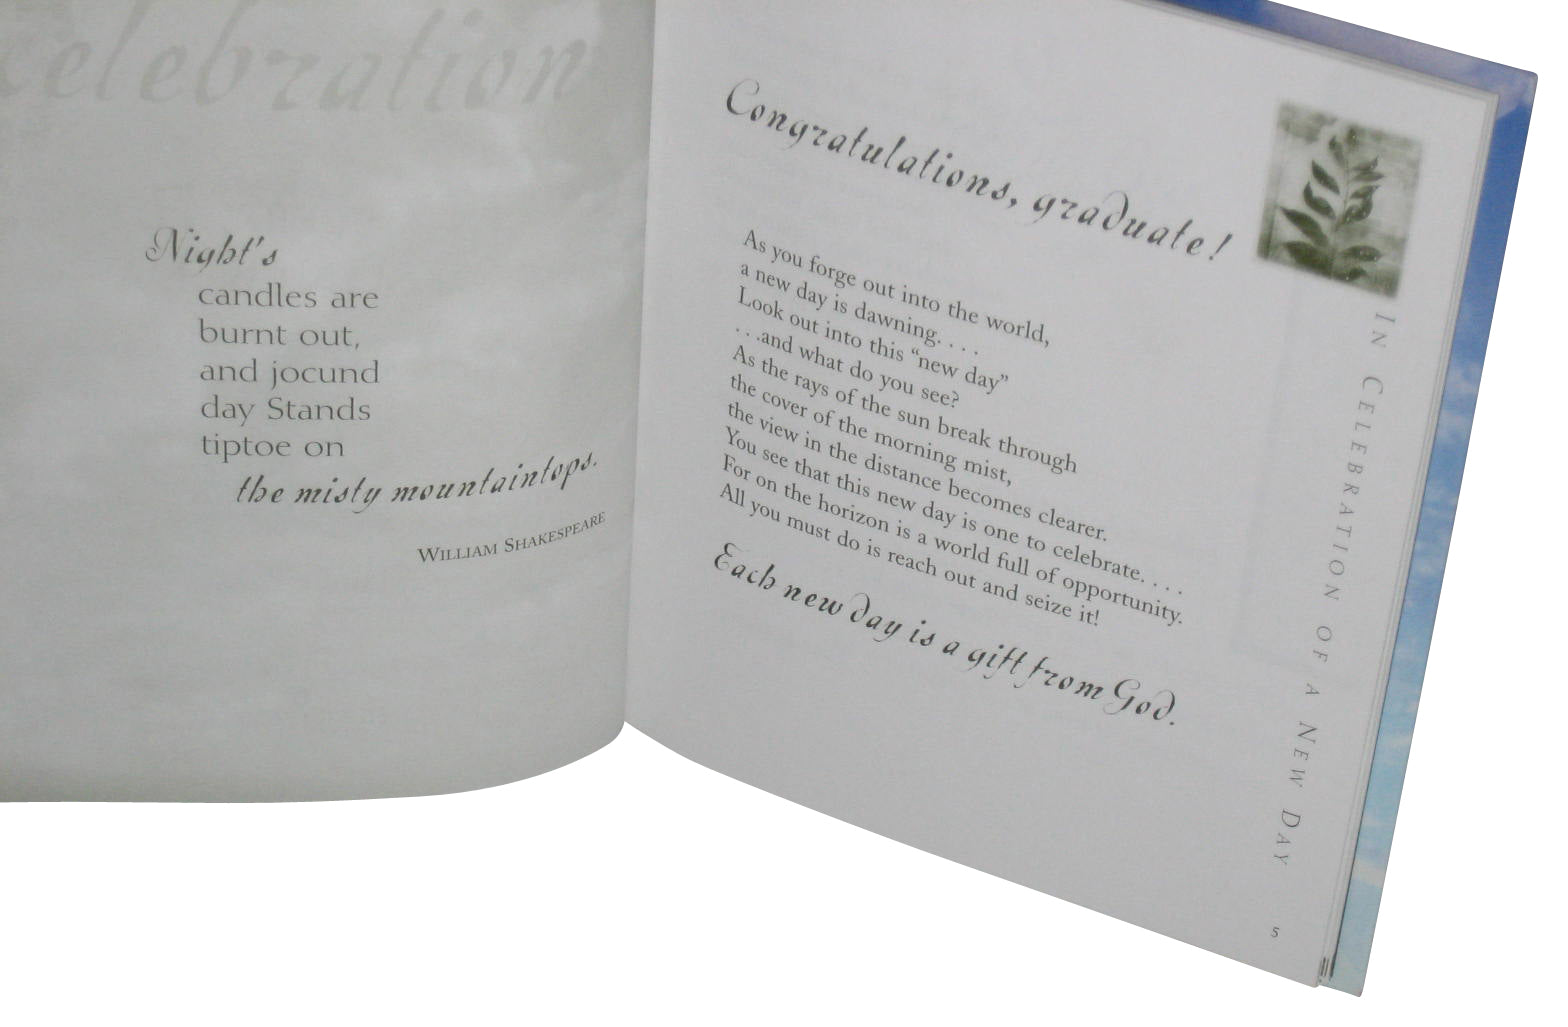 celebration
Night's
candles are
burnt out,
and jocund
day Stands
tiptoe on
the misty mountaintops.
WILLIAM SHAKESPEARE
Congratulations, graduate!
As you forge out into the world,
a new day is dawning. . . .
Look out into this “new day”
. . .and what do you see?
As the rays of the sun break through
the cover of the morning mist,
the view in the distance becomes clearer.
You see that this new day is one to celebrate. . . .
For on the horizon is a world full of opportunity.
All you must do is reach out and seize it!
Each new day is a gift from God.
IN CELEBRATION OF A NEW DAY
5